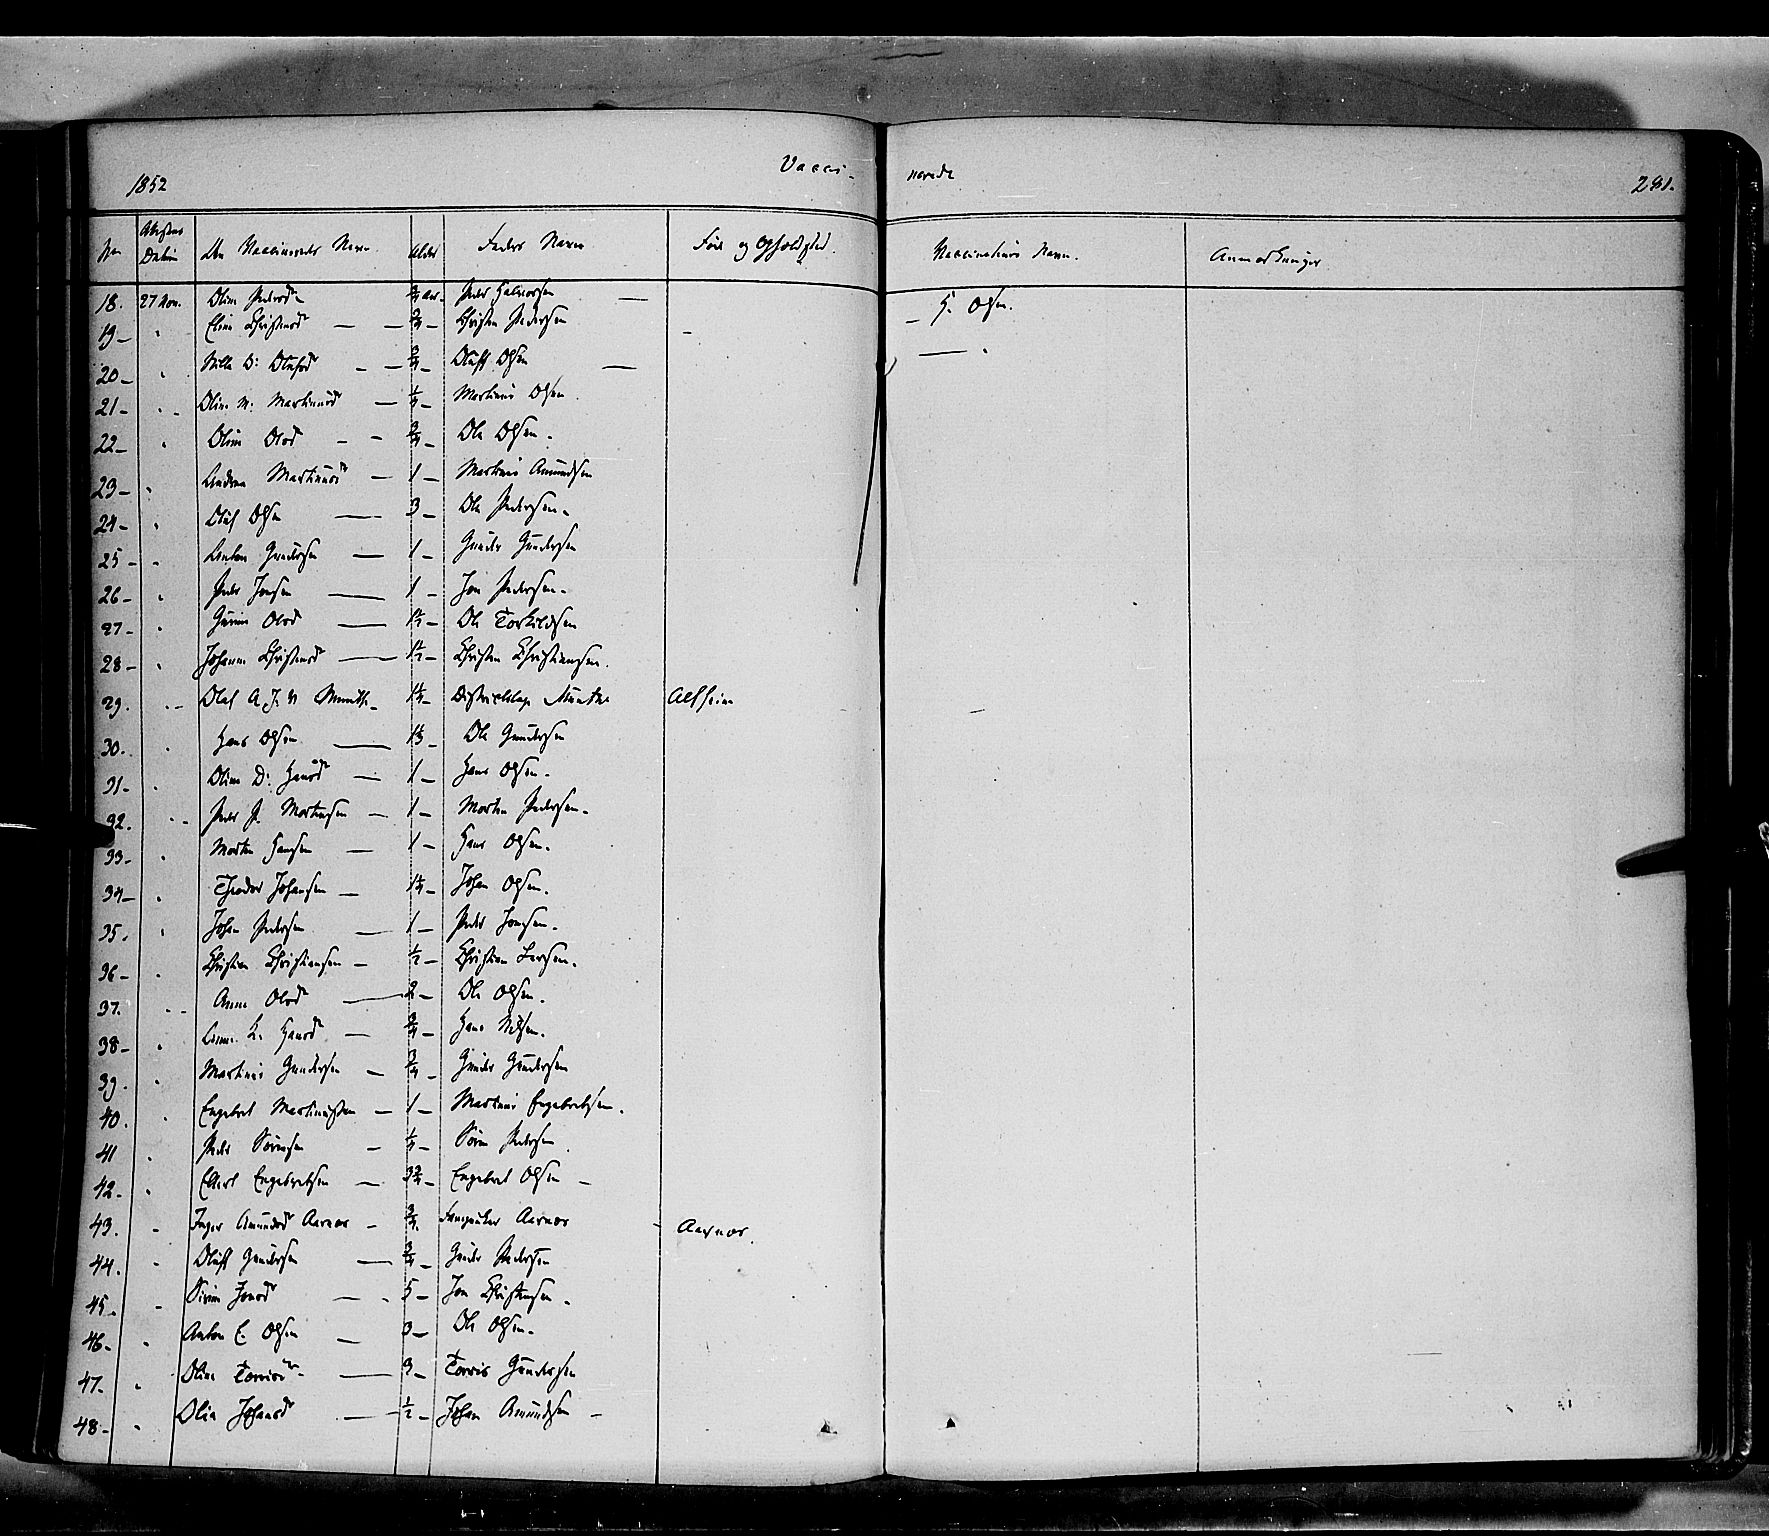 1852 Vacci- nerede 291.
No Attestens Datum Den Vaccineredes Navn. Alder Faders Navn Føde og Opholdsted. Vaccinateurs Navn. Anmærkninger
18. 27 Nov. Oline Pedersd - 3/4 Aar - Peder Halvorsen — - H. Olsen.
19 - " Eline Christensd — - 3/4 - Christen Pedersen -
20 - " D: Olufsd - - 3/4 - Oluff Olsen — — "
21 - " - Oline M. Martinusd — 1/4 - Martinus Olsen
22 - " Oline Olsd - - 3/4 - Ole Olsen.
23 - " Andrea Martinusd — 1 - Martinus Amundsen
24 - " Oluf Olsen — 3 - Ole Pedersen.
25 - " Anton Gundersen — 1 - Gunder Gundersen
26 - " Peder Jonsen — 1 - Jon Pedersen.
27 - " Olsd — 1 1/2 - Ole Torkildsen
28 - " Johanne Christensd — 1 1/2 - Christen Christiansen.
29. " - Olaf A. J. Munthe - 1 1/4 - Districtslæge Munthe Alfheim
30. " Hans Olsen — Ole Gundersen
31 - " Oline D: Hansd — 1 - Hans Olsen.
32. " - Peder P. Mortensen — 1 - Morten Pedersen.
33 - " Morten Hansen — 1 - Hans Olsen.
34 - " Theodor Johansen — 1 1/4 - Johan Olsen.
35. " Johan Pedersen — 1 - Peder Jonsen.
36 - " Christian Christiansen - 1/2 - Christian Larsen.
37. " - Anne Olsd — 2 - Ole Olsen.
38 - " Anne K. Hansd — 3/4 - Hans Nilsen.
39. " Martinus Gundersen — 3/4 - Gunder Gundersen
40. " Engebret Martinussen — 1 - Martinus Engebretsen.
41 " Peder Sørensen - 1/4 - Søren Pedersen
42. " Carl Engebretsen — 3 3/4 - Engebret Olsen -
43. " Inger Amundsd Aarnæs - 3/4. Aarnæs - Aarnæs.
44. " Oluff Gundersen — 3/4 - Gunder Pedersen
45. " Jonsd — . 5 - Jon Christensen.
46. " Anton E. Olsen — 3 - Ole Olsen.
47. " Oline Torrisd - — 3 - Torris Gundersen
48. " Olia Johansd — 1/2 - Johan Amundsen -